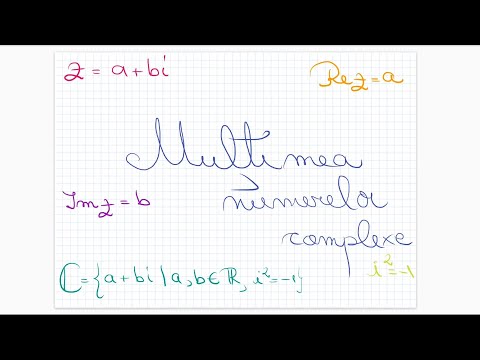 z = a+bi
Re z = a
Mulțimea
numerelor
complexe
Im z = b
i² = -1
ℂ = {a + bi | a, b ∈ ℝ, i² = -1}